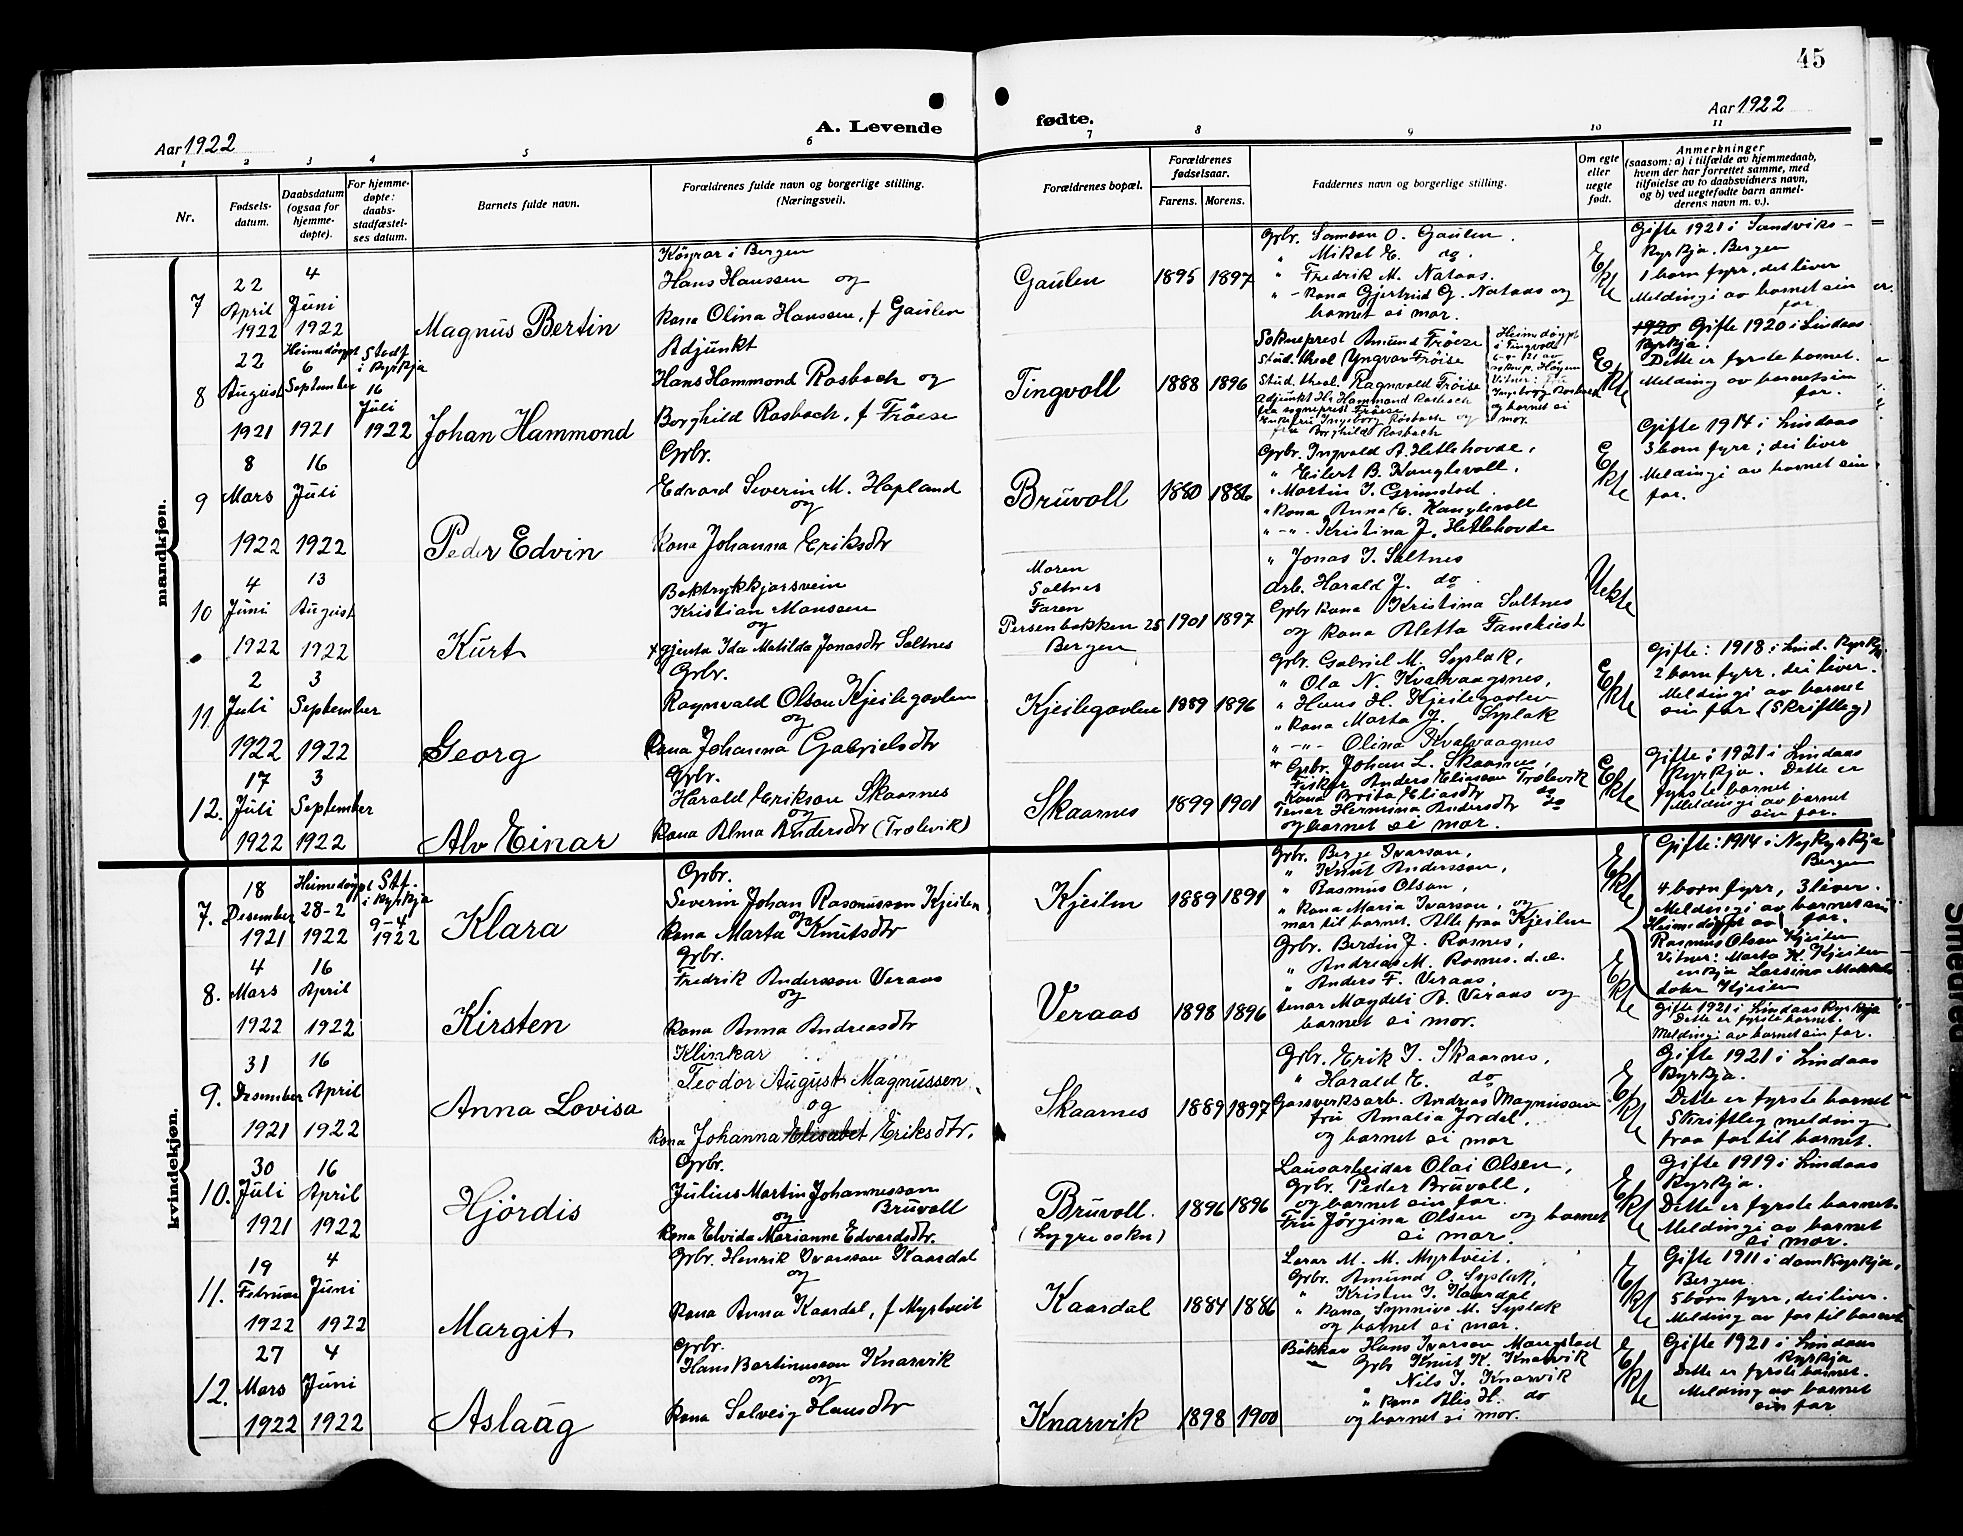 45
Aar 1922
A. Levende
fødte.
Aar 1922
1 2 3 4 5 6 7 8 9 10 11
Nr.
Fødsels-
datum.
Daabsdatum
(ogsaa for
hjemme-
døpte).
For hjemme-
døpte:
daabs-
stadfæstel-
ses datum.
Barnets fulde navn.
Forældrenes fulde navn og borgerlige stilling.
(Næringsvei).
Forældrenes bopæl.
Forældrenes
fødselsaar.
Farens. Morens.
Faddernes navn og borgerlige stilling.
Om egte
eller
uegte
født.
Anmerkninger
(saasom: a) i tilfælde av hjemmedaab,
hvem der har forrettet samme, med
tilføielse av to daabsvidners navn,
og b) ved uegtefødte barn anmel-
derens navn m. v.).
mandkjøn.
7
22
April
1922
4
Juni
1922
Magnus Bertin
i Bergen
Hans Hanssen og
kona Olina Hanssen, f Gaulen
Gaulen
1895 1897
Grbr. Samson O. Gaulen.
" Mikal E. do.
" Fredrik M. Nataas.
" - kona Gjertrud G. Nataas og
barnet si mor.
Ekte
Gifte 1921 i Sandviks-
kyrkja. Bergen
1 born fyrr, det liver
Meldingi av barnet sin
far.
8
22
August
1921
Heimedöypt
6
September
1921
Stadf
i kyrkja
16
Juli
1922
Johan Hammond
Adjunkt
Hans Hammond Rosbach og
Borghild Rosbach, f Fröese
Tingvoll
1888 1896
Sokneprest Amund Fröese
Stud. theol Yngvar Fröise
Stud. theol. Ragnvald Fröise
Adjunkt H. Hammond Rosbach
fra sogneprest Fröese
Enkefru Ingeborg Rosbach og
fru Borghild Rosbach
Heimedöypt
i Tingvoll
6-9-1921 av
sokn.p. Höyem
Vitner: Fru
Ingeborg Rosbach
og barnet si
mor.
Ekte
1920 Gifte 1920 i Lindaas
kyrkja.
Dette er fyrste barnet.
Melding av barnet sin
far.
9
8
Mars
1922
16
Juli
1922
Peder Edvin
Grbr.
Edvard Severin M. Hopland
og
kona Johanna Eriksdtr
Bruvoll
1880 1886
Grbr. Ingvald A. Hetlehovde,
" Eilert B. Kanglsvoll,
" Martin J. Grimstad.
" kona Anna E. Kanglsvoll
" -"- Kristina J. Hetlehovde
Ekte
Gifte 1914 i Lindaas
3 born fyrr; dei liver
Meldingi av barnet sin
far.
10
4
Juni
1922
13
August
1922
Kurt
Boktrykkjarsvein
Kristian Monssen
og
gjenta Ida Matilda Jonasdtr Saltnes
Moren
Saltnes
Faren
Persenbakken 25
Bergen
1901 1897
" Jonas J. Saltnes
Arb. Harald J. do.
Grbr kona Kristina Saltnes
og kona Aletta Fanekvist
Uekte
11.
2
Juli
1922
3
September
1922
Georg
Grbr.
Ragnvald Olson Kjeilegavlen
og
kona Johanna Gabrielsdtr
Kjeilegavlen
1889 1896
Grbr. Gabriel M. Syslak,
" Ola N. Kvalvaagsnes,
" Hans H. Kjeilegavlen
" kona Marta J. Syslak
" -"- Olina Kvalvaagnes
Ekte
Gifte: 1918 i Lind. kyrkj
2 born fyrr, dei liver.
Meldingi av barnet
sin far (Skriftleg)
12.
17
Juli
1922
3
September
1922
Alv Einar
Grbr.
Harald Erikson Skaarnes
og
kona Alma Andersdtr (Trælevik)
Skaarnes
1899 1901
" Grbr. Johan L. Skaarnes,
Fiskar Anders Eliasson Trælevik
Kona Brita Eliasdtr do
Tenar Hermina Andersdtr do
og barnet si mor.
Ekte
Gifte: 1921 i Lindaas
kyrkja. Dette er
fyrste barnet
Meldingi av barnet
sin far.
kvindekjøn.
7.
18
Desember
1921
Heimedöypt
28-2
1922
Stf.
i kyrkja
9-4
1922
Klara
Grbr.
Severin Johan Rasmusson Kjeilen
og
kona Marta Knutsdtr
Kjeilen
1889 1891
Grbr. Berge Ivarson,
" Knut Andersson,
" Rasmus Olson,
" kona Maria Ivarson, og
mor til barnet. Alle fraa Kjeilen
Ekte
Gifte: 1914 i Nykyrkja
Bergen
4 born fyrr, 3 liver.
Meldingi av barnet sin
far.
Heimedöypt av
Rasmus Olson Kjeilen
Vitner: Marta K. Kjeilen
enkja Lassina
doter Kjeilen
8.
4
Mars
1922
16
April
1922
Kirsten
Grbr.
Fredrik Andersson Veraas
og
kona Anna Andreasdtr
Veraas
1898 1896
Grbr. Berdin J. Rosnes,
" Andreas M. Rosnes. d.e.
" Anders F. Veraas,
tenar Magdeli A. Veraas og
barnet si mor.
Ekte
Gifte 1921 i Lindaas kyrkja
Dette er fyrste barnet.
Meldingi av barnet sin far.
9.
31
Desember
1921
16
April
1922
Anna Lovisa
Klinkar
Teodor August Magnussen
og
kona Johanna Elisabet Eriksdtr.
Skaarnes
1889 1897
Grbr. Erik J. Skaarnes,
" Harald E. do
Gassverksarb. Andreas Magnussen
fru Amalia Jordal,
og barnet si mor
Ekte
Gifte 1921 i Lindaas
kyrkja.
Dette er fyrste barnet
Skriftleg melding
fraa far til barnet.
10.
30
Juli
1921
16
April
1922
Hjördis
Grbr.
Julius Martin Johannesson
Bruvoll
og
kona Elvida Marianne Edvardsdtr.
Bruvoll.
(Lygre sokn)
1896 1896
Lausarbeidar Olai Olsen,
Grbr. Peder Bruvoll,
og barnet sin far.
Fru Jörgina Olsen og barnet
si mor.
Ekte
Gifte 1919 i Lindaas
kyrkja.
Dette er fyrste barnet.
Meldingi av barnet
si mor.
11.
19
Februar
1922
4
Juni
1922
Margit
Grbr. Henrik Ivarsson Kaardal
og
kona Anna Kaardal, f Myrtveit
Kaardal
1884 1886
Lerar M. M. Myrtveit.
Grbr. Amund O. Syslak,
" Kristen J. Kaardal
" kona Synniva M. Syslak
og barnet si mor.
Ekte
Gifte 1911 i domkyrkja,
Bergen.
5 born fyrr, dei liver.
Melding av far til barnet
12.
27
Mars
1922
4
Juni
1922
Aslaug
Grbr.
Hans Bertinusson Knarvik
og
kona Solveig Hansdtr
Knarvik
1898 1900
Bökkar Hans Ivarson Mangstad
Grbr Knut K. Knarvik
" Nils J. Knarvik
" kona Alis H. do
og barnet si mor.
Ekte
Gifte 1921 i Lindaas
kyrkja
Dette er fyrste barnet.
Melding av barnet
sin far